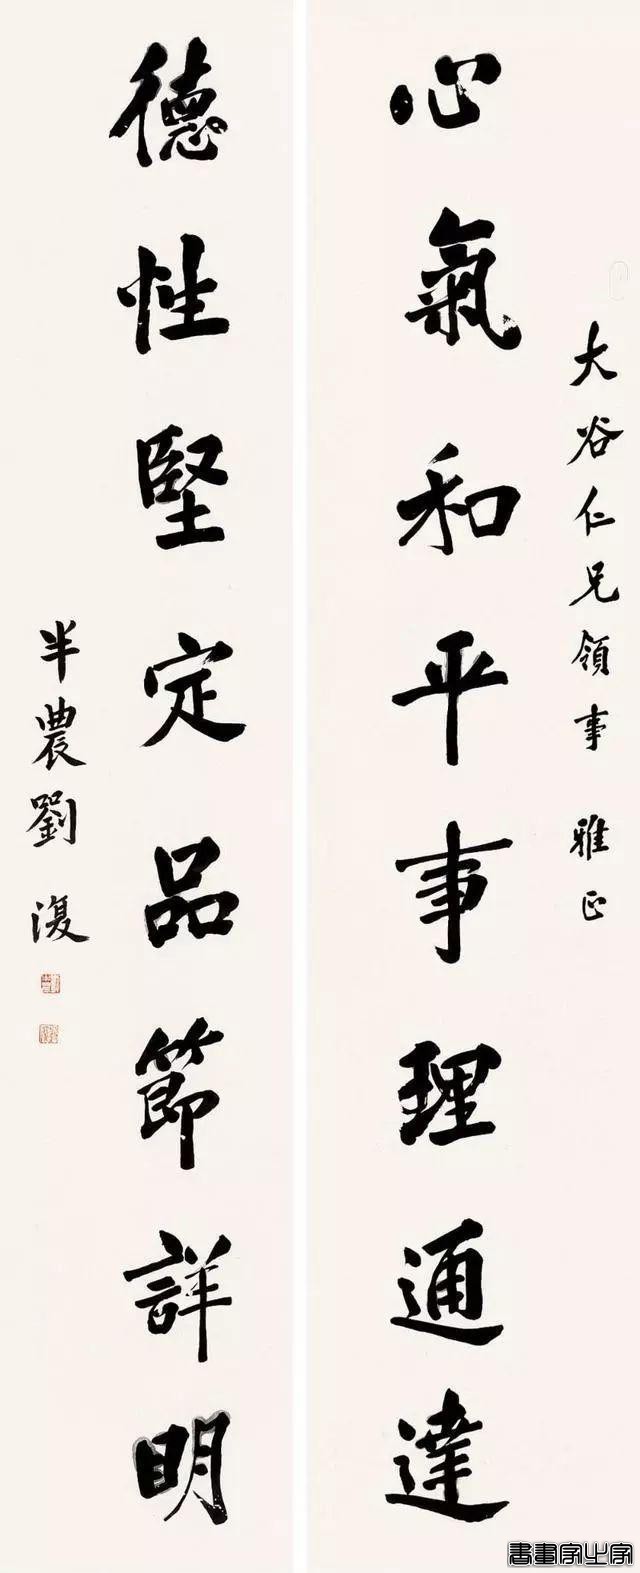 大谷仁兄領事 雅正
心氣和平事理通達
德性堅定品節詳明
半農劉復
書畫家之家